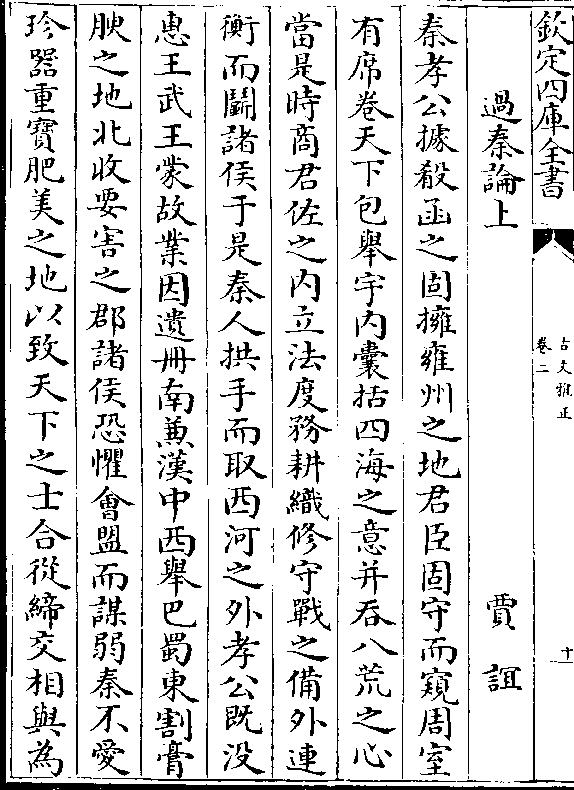 欽定四庫全書
古文雅正
卷二
十
過秦論上
賈誼
秦孝公據殽函之固擁雍州之地君臣固守而窺周室
有席卷天下包舉宇內囊括四海之意并吞八荒之心
當是時商君佐之內立法度務耕織修守戰之備外連
衡而鬭諸侯于是秦人拱手而取西河之外孝公既没
惠王武王蒙故業因遺冊南兼漢中西舉巴蜀東割膏
腴之地北收要害之郡諸侯恐懼會盟而謀弱秦不愛
珍器重寶肥美之地以致天下之士合從締交相與為